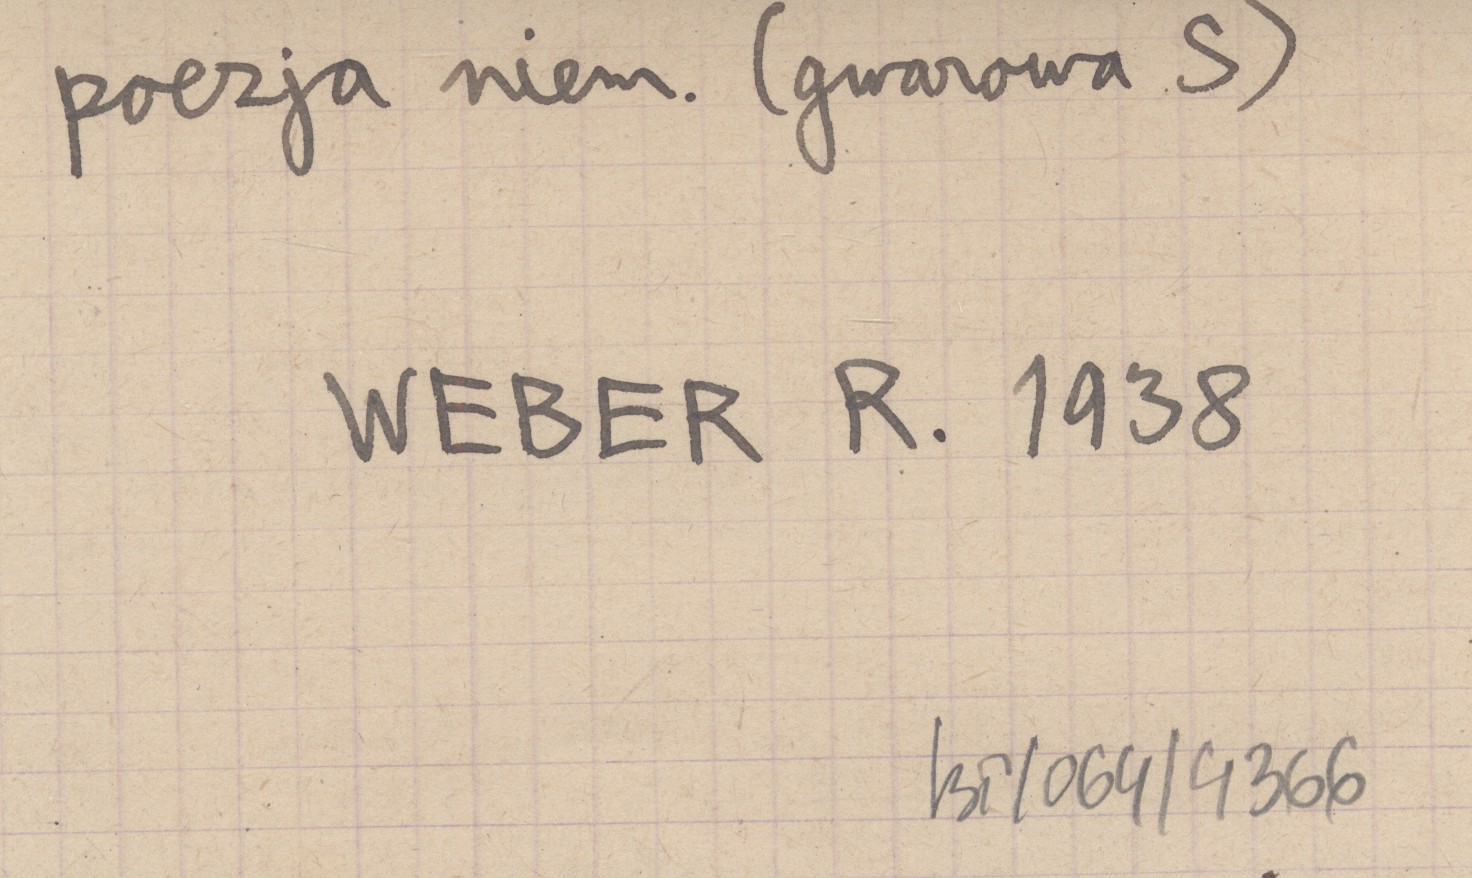 poezja niem. (gwarowa S)
WEBER R. 1938
kr/064/4366